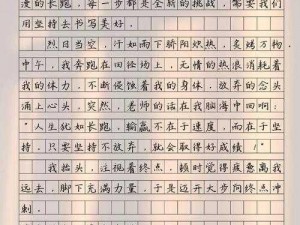 漫的长跑，每一步都是全新的挑战，需要我们
用坚持去书写美好。
烈日当空，汗如雨下骄阳炽热，炙烤万物。
中午，我奔跑在田径场上，无情的热浪消耗着
我的体力，不断侵蚀着我的身体，放弃的念头
涌上心头，突然，老师的话在我脑海中回响：
"人生犹如长跑，输赢不在于速度，而在于坚
持，只要坚持不放弃，就会取得好成绩！"
我抬头，注视着终点，顿时觉得疲惫离我
远去，脚下充满力量，于是迈开大步向终点冲
刺。